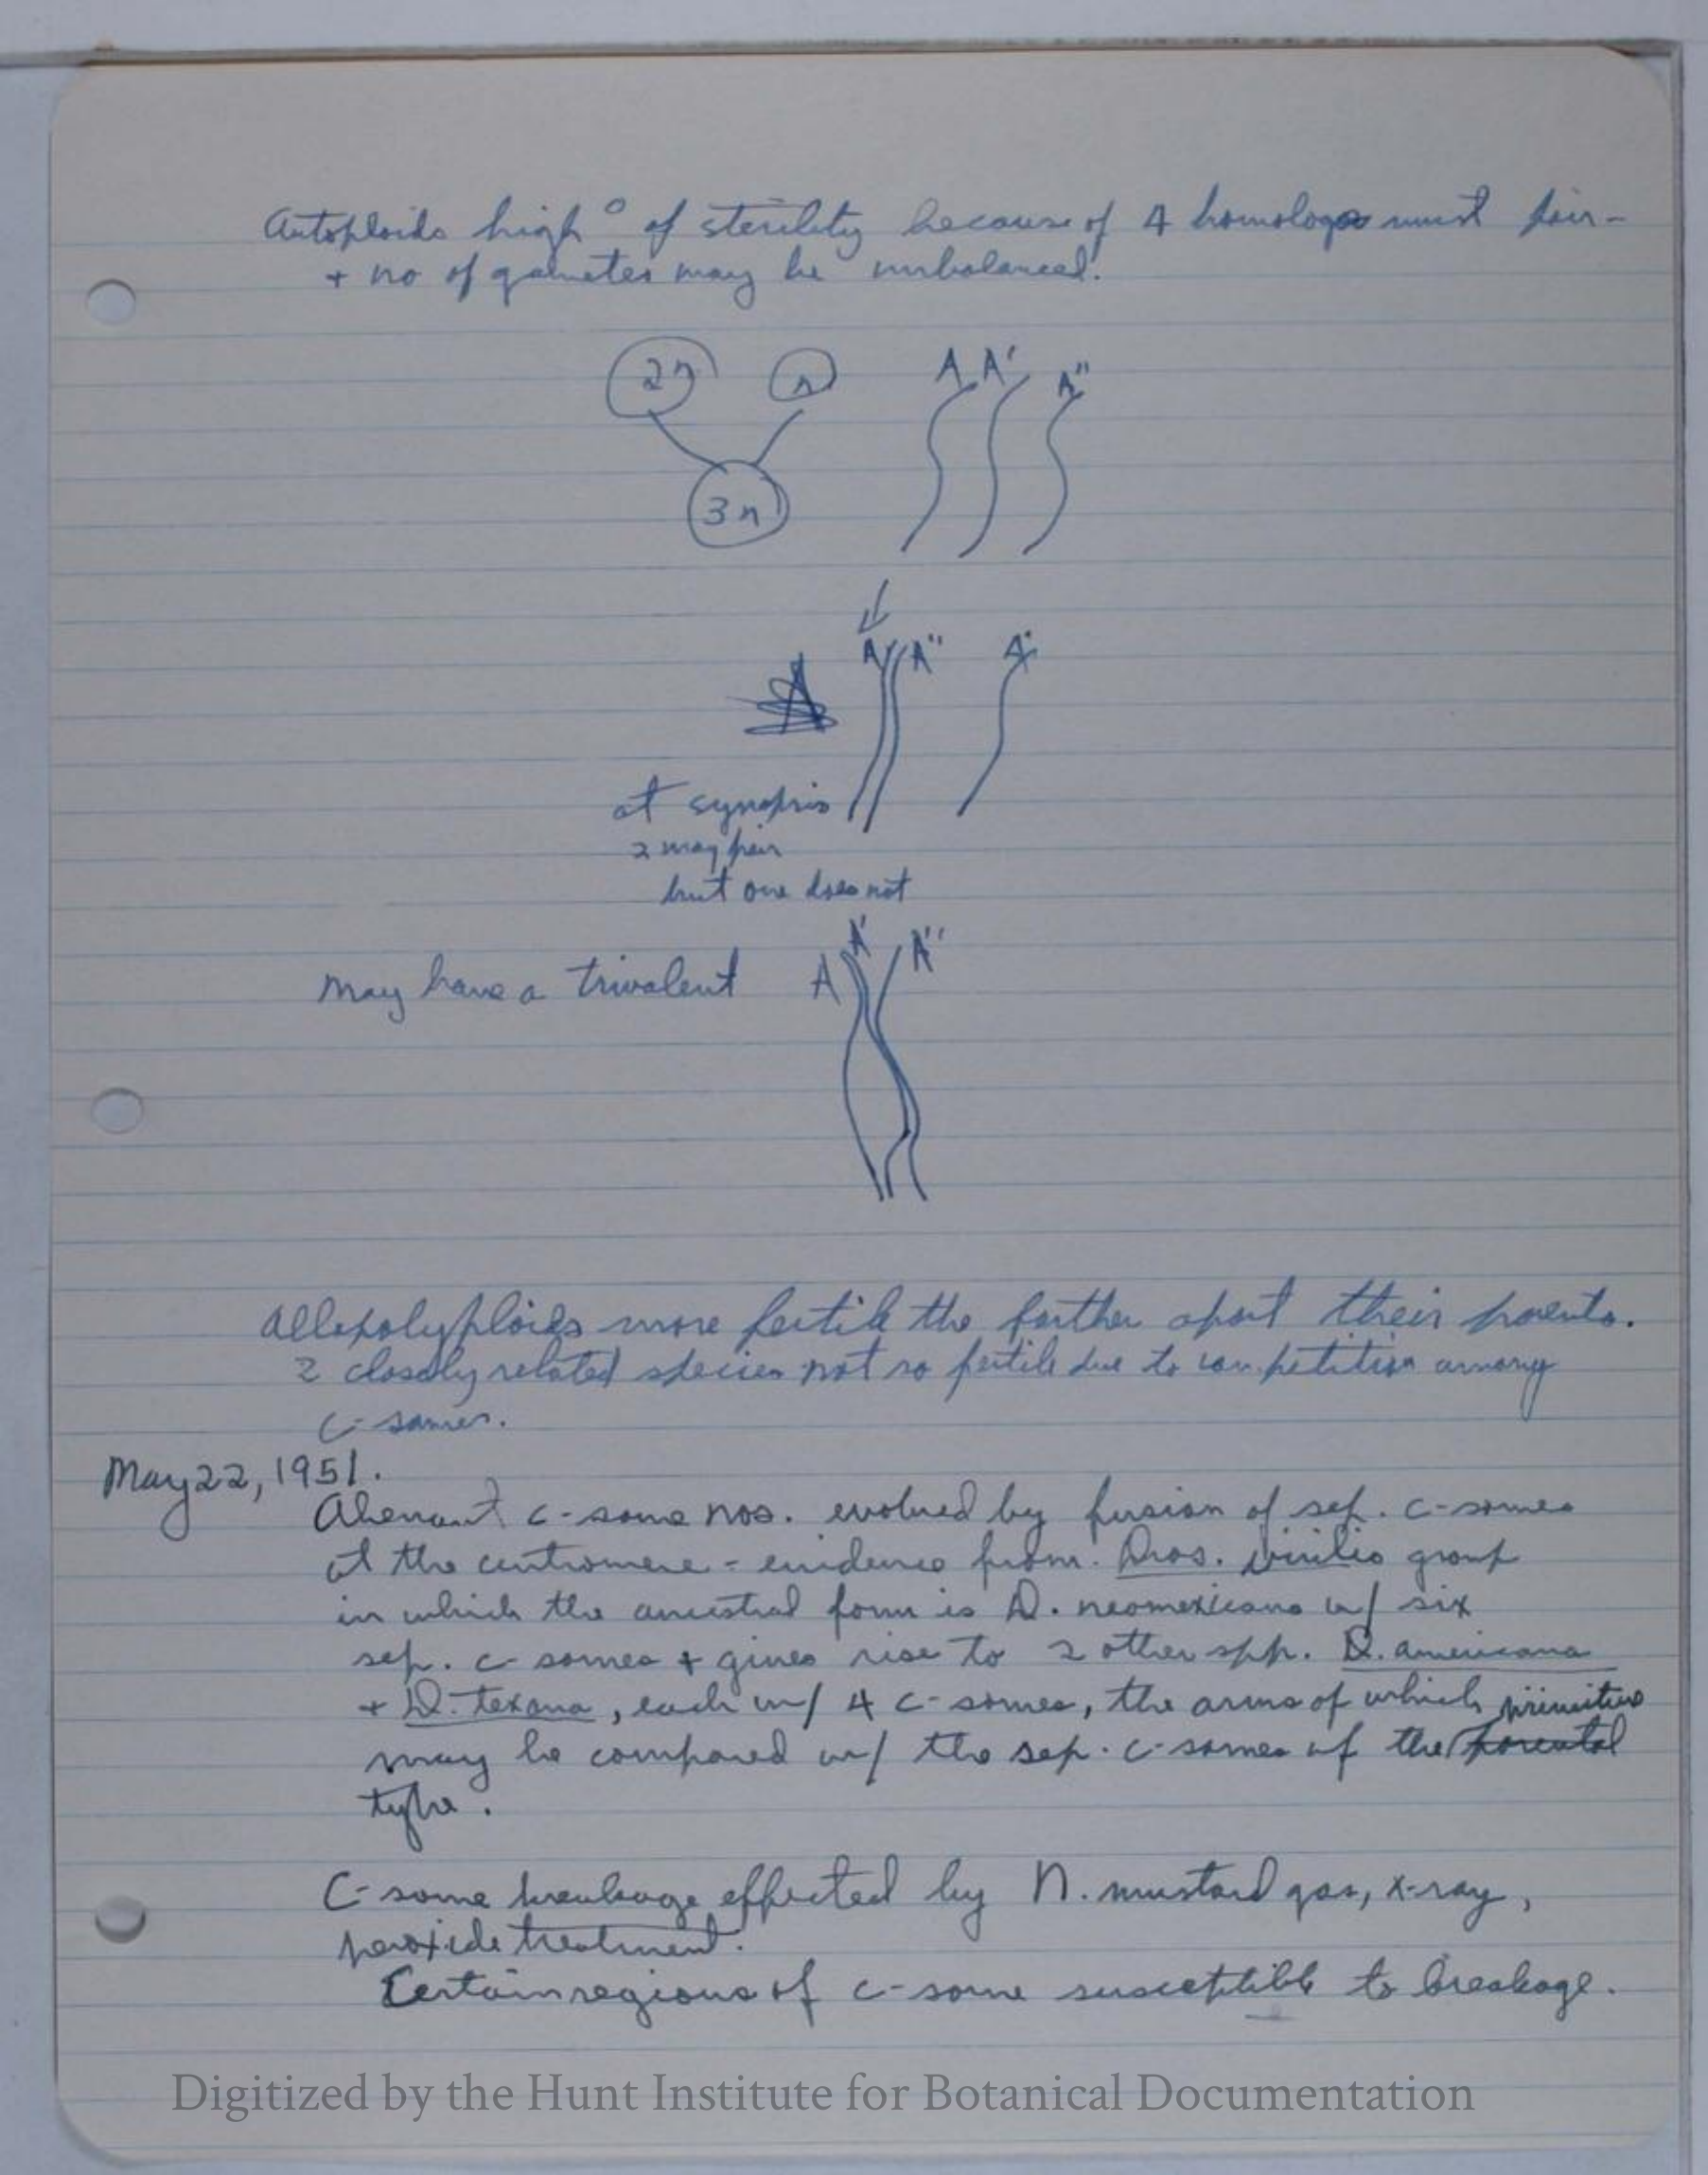 Autoploids high ° of sterility because of 4 homologs must pair -
+ no of gametes may be unbalanced.
2n n A A' A"
3n
A A" A'
at synapsis
2 may pair
but one does not
May have a trivalent A A' A"
Allopolyploids more fertile the farther apart their parents.
2 closely related species not so fertile due to competition among
c-somes.
May 22, 1951.
Aberrant c-some nos. evolved by fusion of sep. c-somes
at the centromere - evidence from Dros. virilis group
in which the ancestral form is D. neomexicana w/ six
sep. c-somes + gives rise to 2 other spp. D. americana
+ D. texana, each w/ 4 c-somes, the arms of which
may be compared w/ the sep. c-somes of the primitive parental
type.
C-some breakage effected by N. mustard gas, x-ray,
peroxide treatment.
Certain regions of c-some susceptible to breakage.
Digitized by the Hunt Institute for Botanical Documentation